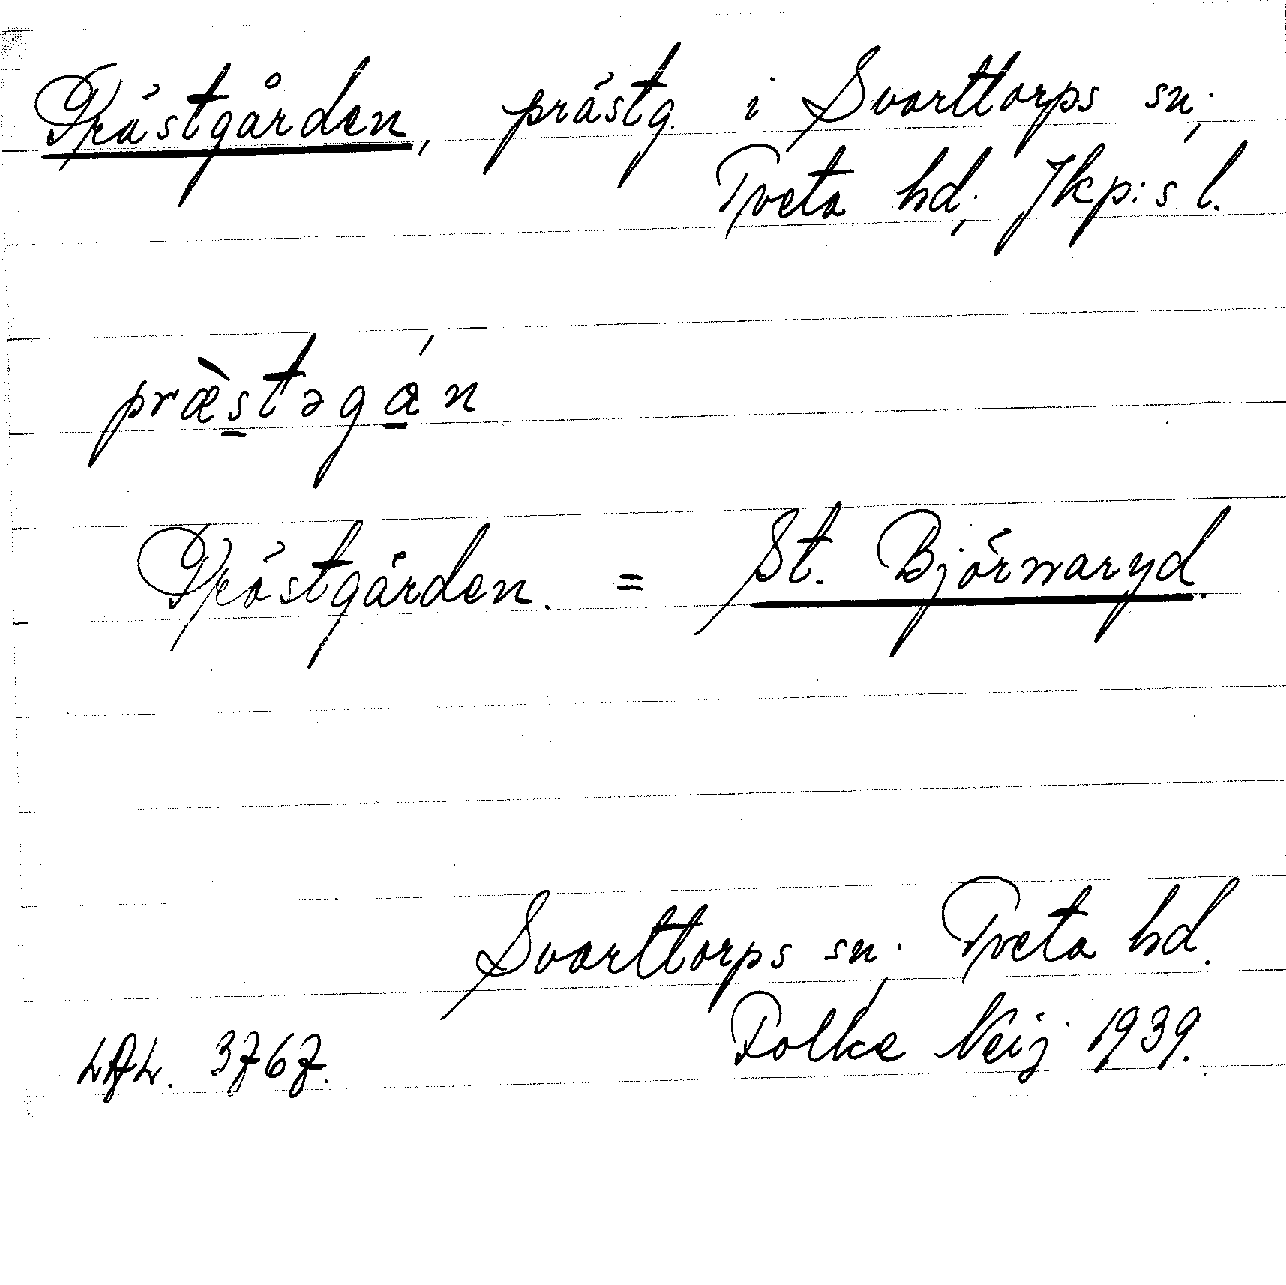 Prästgården, prästg. i Svarttorps sn;
Tveta hd; Jkp:s l.
præ̀stəgán
Prästgården. = St. Björnaryd.
Svarttorps sn; Tveta hd.
Folke Neij 1939.
LAL. 3767.